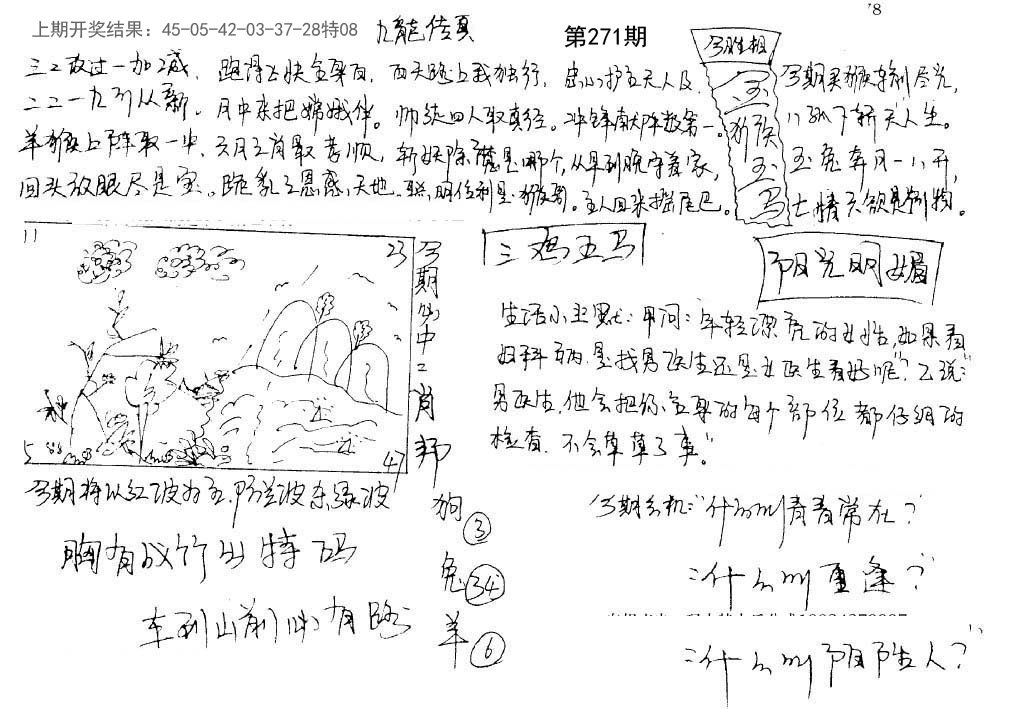 上期开奖结果：45-05-42-03-37-28特08
九龍传真
第271期
'8
今期肖相
三二改过一加减，跑得比快全身白，西天路上我独行，忠心护主夫人及，
二二一九引从新。月中来把嫦娥伴。师徒四人取真经。冲锋献阵数第一。
羊猴上阵取一中，六月三肖最孝顺，斩妖除魔是哪个，从早到晚守着家，
回头放眼尽是宝。跪乳之恩感天地。聪明伶利是猴哥。主人回来摇尾巴。
玉
猴
玉
马
今期买猴车别尽光，
八孤下轿天人生。
玉兔奔月一八开，
七情六欲是别物。
11
23
5
47
今期必中二肖
狗③
兔㉞
羊⑥
三鸡五马
阳光明媚
生活小幽默：甲问："年轻漂亮的女性，如果看
妇科病，是找男医生还是女医生看好呢？"乙说："
男医生，他会把你全身的每个部位都仔细的
检查，不会草草了事。"
今期将以红波为主，防蓝波杂绿波
胸有成竹出特码
车到山前必有路
今期玄机："什么叫青春常在？"
："什么叫重逢？"
："什么叫阴阳人？"